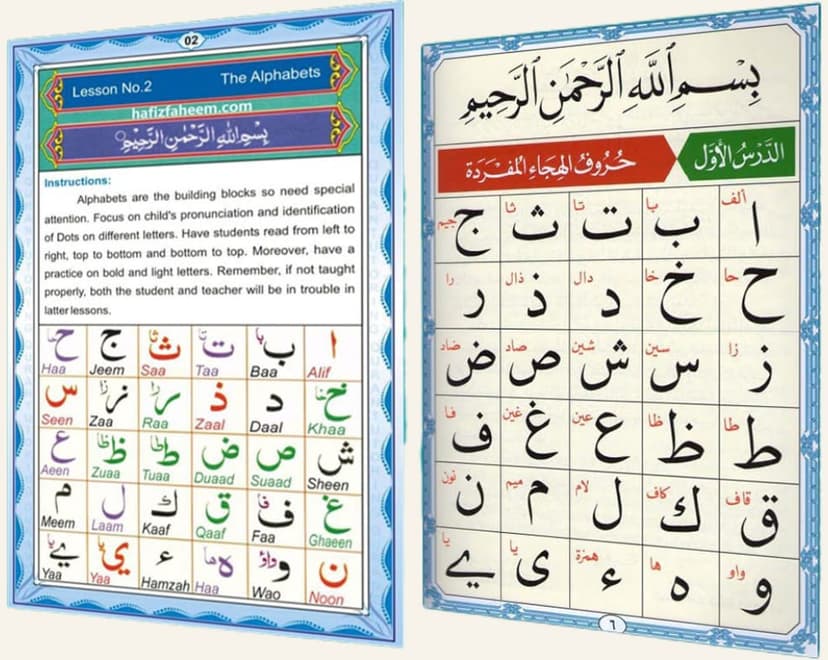 02
Lesson No.2 The Alphabets
hafizfaheem.com
بِسْمِ اللهِ الرَّحْمٰنِ الرَّحِيْمِ
Instructions:
Alphabets are the building blocks so need special
attention. Focus on child's pronunciation and identification
of Dots on different letters. Have students read from left to
right, top to bottom and bottom to top. Moreover, have a
practice on bold and light letters. Remember, if not taught
properly, both the student and teacher will be in trouble in
latter lessons.
ا ب با ت تا ث ثا ج ح حا
Haa Jeem Saa Taa Baa Alif
خ خا د ذ ر را ز زا س
Seen Zaa Raa Zaal Daal Khaa
ش ص ض ط طا ظ ظا ع
Aeen Zuaa Tuaa Duaad Suaad Sheen
غ ف فا ق ك ل م
Meem Laam Kaaf Qaaf Faa Ghaeen
ن و واؤ ه ها ء ي يا ے يا
Yaa Yaa Hamzah Haa Wao Noon
بِسْمِ ٱللَّهِ ٱلرَّحْمَٰنِ ٱلرَّحِيمِ
الدَّرْسُ الأَوَّل حُرُوفُ الهِجَاءِ المُفْرَدَة
ألف ا با ب تا ت ثا ث جيم ج
حا ح خا خ دال د ذال ذ را ر
زا ز سين س شين ش صاد ص ضاد ض
طا ط ظا ظ عين ع غين غ فا ف
قاف ق كاف ك لام ل ميم م نون ن
واو و ها ه همزة ء يا ى يا ے
٦